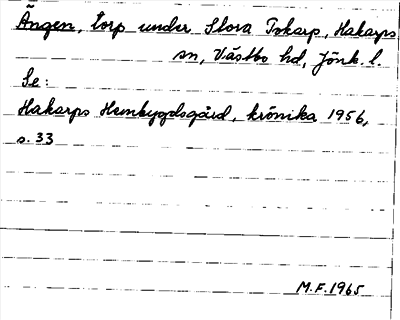 Ängen, torp under Stora Iskarp, Hakarps
sn, Västbo hd, Jönk. l.
Se:
Hakarps Hembygdsgård, krönika 1956,
s. 33
M.F. 1965